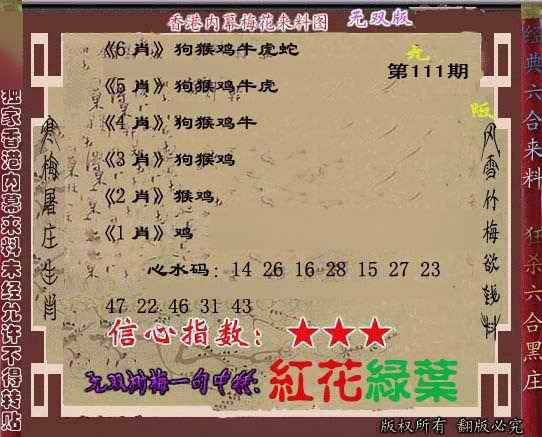 香港内幕梅花来料图 无双版
《6 肖》狗猴鸡牛虎蛇
无
第111期
《5 肖》狗猴鸡牛虎
版
《4 肖》狗猴鸡牛
《3 肖》狗猴鸡
《2 肖》猴鸡
《1 肖》鸡
心水码: 14 26 16 28 15 27 23
47 22 46 31 43
信心指数: ★★★
紅花綠葉
版权所有 翻版必究
独家香港内幕来料未经允许不得转贴
寒梅屠庄生肖
风雪竹梅欲钱料
经典六合来料 狂杀六合黑庄